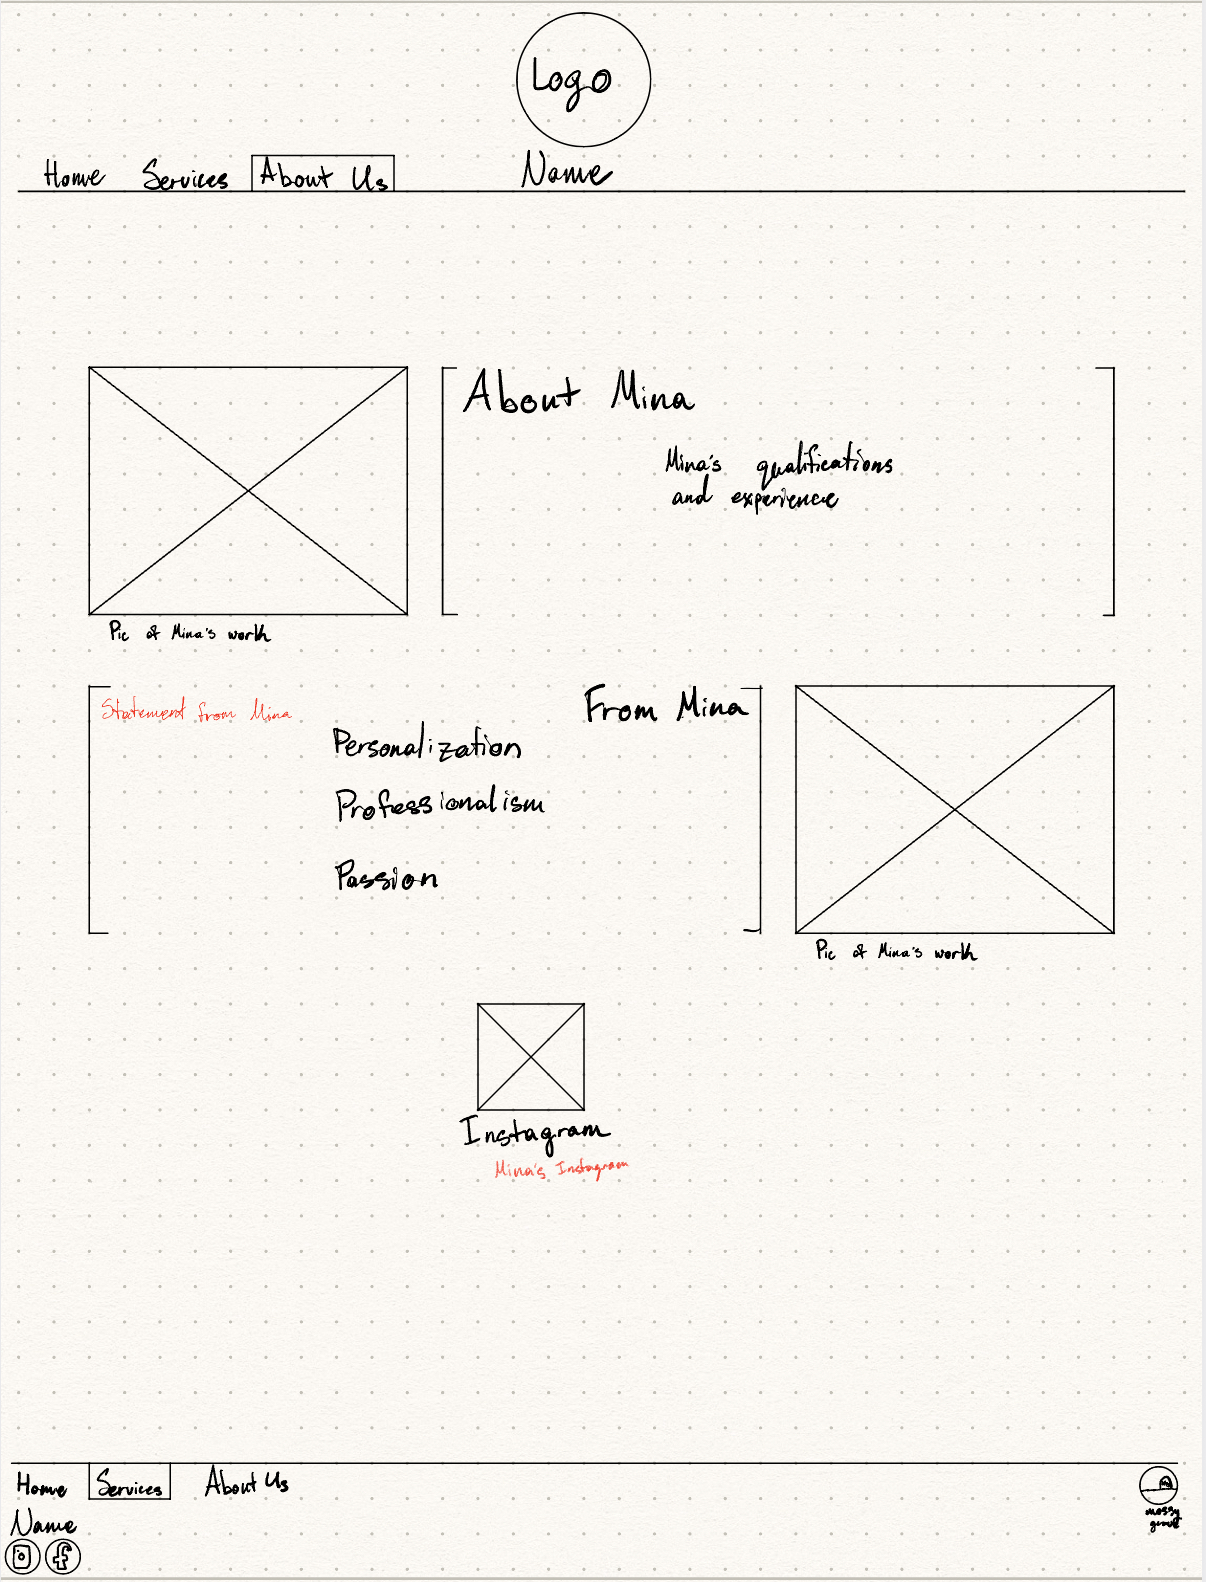 Logo
Name
Home Services About Us
About Mina
Mina's qualifications
and experience
Pic of Mina's work
From Mina
Statement from Mina
Personalization
Professionalism
Passion
Pic of Mina's work
Instagram
Mina's Instagram
Home Services About Us
Name
mossy